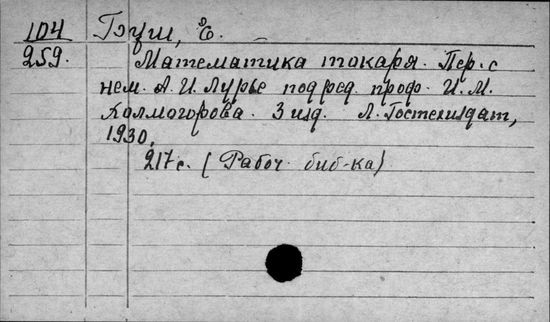 104 Гэуш, Е.
259. Математика токаря. Пер. с
нем. А. И. Лурье под ред. проф. И. М.
Холмогорова. 3 изд. Л. Гостехиздат,
1930.
217 с. (Рабоч. биб-ка)